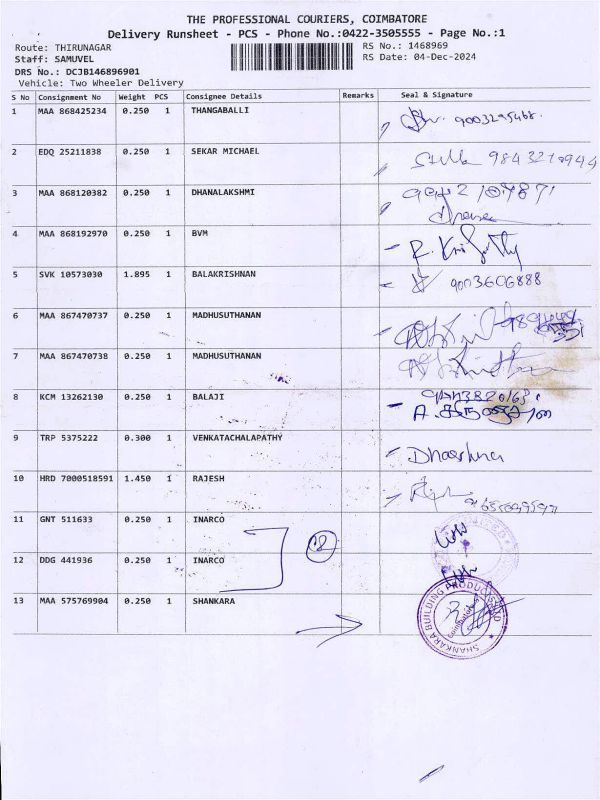 THE PROFESSIONAL COURIERS, COIMBATORE
Delivery Runsheet - PCS - Phone No.:0422-3505555 - Page No.:1
Route: THIRUNAGAR RS No.: 1468969
Staff: SAMUVEL RS Date: 04-Dec-2024
DRS No.: DCJB146896901
Vehicle: Two Wheeler Delivery
S No Consignment No Weight PCS Consignee Details Remarks Seal & Signature
1 MAA 868425234 0.250 1 THANGABALLI
2 EDQ 25211838 0.250 1 SEKAR MICHAEL
3 MAA 868120382 0.250 1 DHANALAKSHMI
4 MAA 868192970 0.250 1 BVM
5 SVK 10573030 1.895 1 BALAKRISHNAN 9003606888
6 MAA 867470737 0.250 1 MADHUSUTHANAN
7 MAA 867470738 0.250 1 MADHUSUTHANAN
8 KCM 13262130 0.250 1 BALAJI
9 TRP 5375222 0.300 1 VENKATACHALAPATHY
10 HRD 7000518591 1.450 1 RAJESH
11 GNT 511633 0.250 1 INARCO
12 DDG 441936 0.250 1 INARCO
13 MAA 575769904 0.250 1 SHANKARA
SHANKARA BUILDING PRODUCTS LTD
Coimbatore